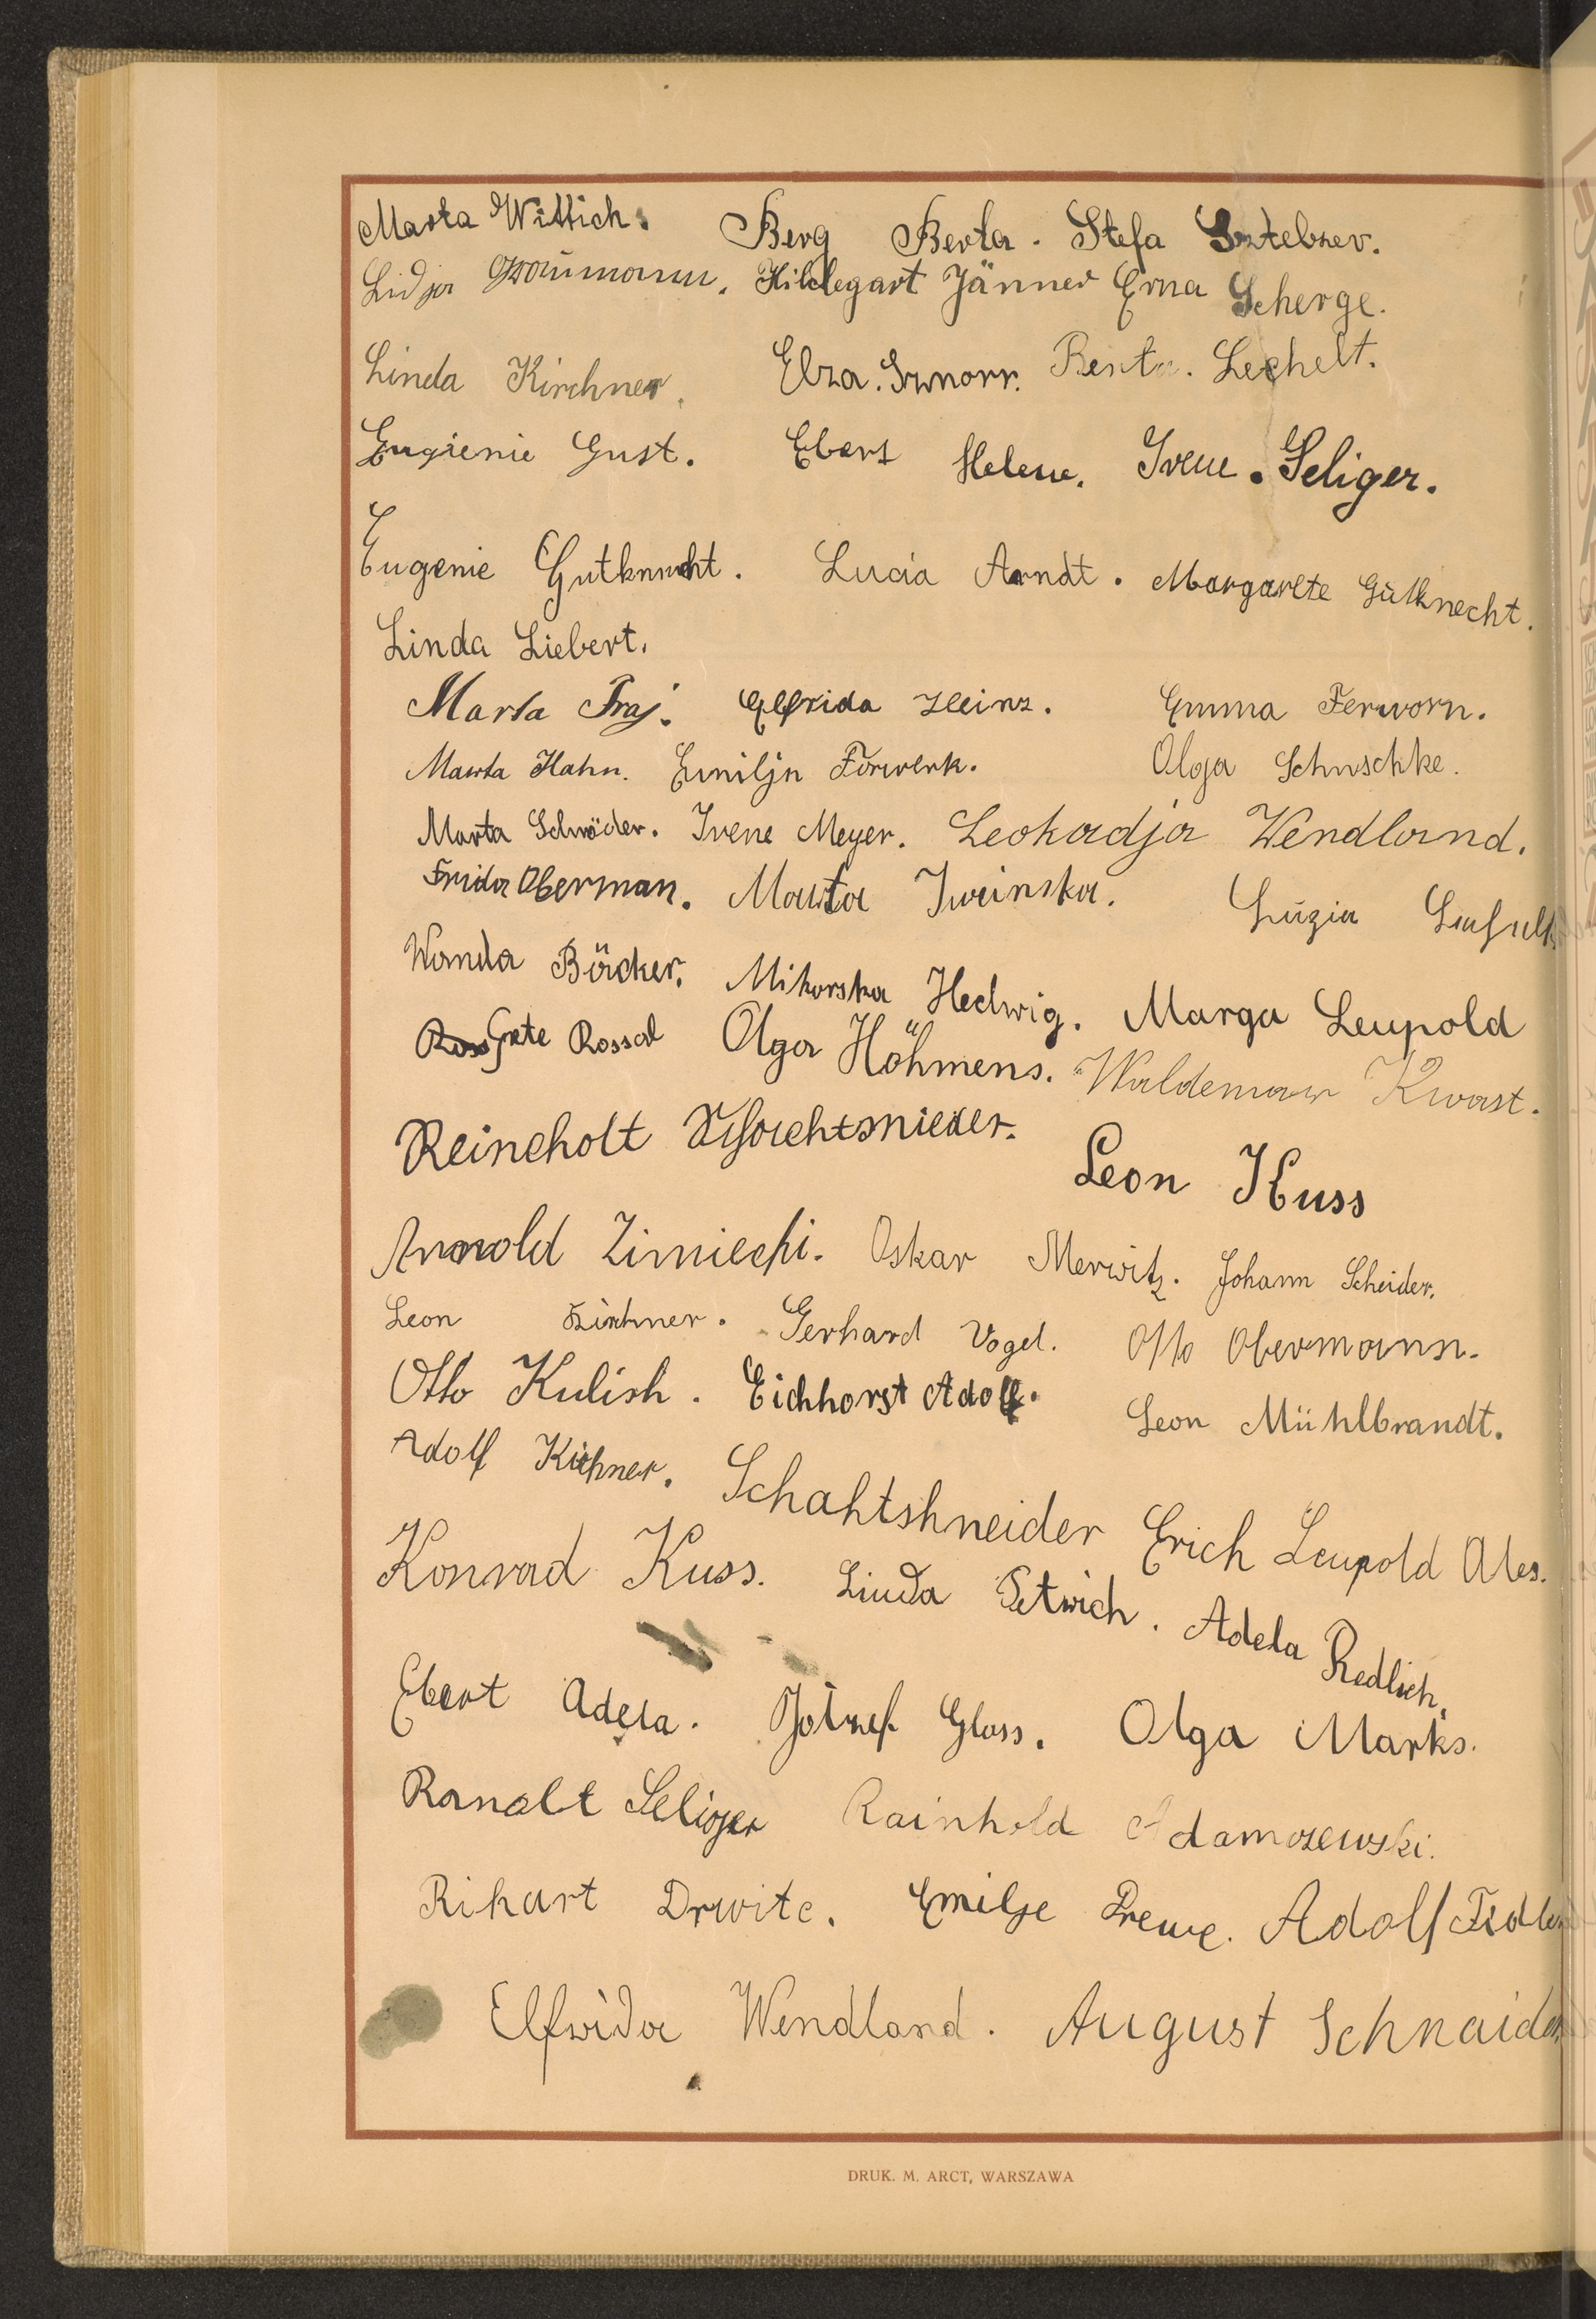 Marta Wittich. Berg Berta. Stefa Sztebner.
Lidja Graumann. Hildegart Jänner Erna Scherge.
Linda Kirchner. Elza. Sznorr. Berta. Lechelt.
Eugienie Gust. Ebert Helene. Irene. Seliger.
Eugenie Gutknecht. Lucia Arndt. Margarete Gutknecht.
Linda Liebert.
Marta Fraj. Elfrida Heinz. Emma Ferworn.
Marta Hahn. Emilja Forwerk. Olga Schuschke.
Marta Schröder. Irene Meyer. Leokadja Wendland.
Frida Oberman. Marta Iwinska. Luzia
Wanda Bäcker. Mikorska Hedwig. Marga Leupold
Grete Rossol Olga Höhmens. Waldemar Kwast.
Reincholt
Leon Kuss
Arnold Zimiecki. Oskar Merwitz. Johann Scheider.
Leon Kirchner. Gerhard Vogel. Otto Obermann.
Otto Kulish. Eichhorst Adolf. Leon Mühlbrandt.
Adolf Kirhner. Schahtshneider Erich Leupold Alex.
Konrad Kuss. Linda Petrich. Adela Redlich.
Ebert Adela. Józef Glass. Olga Marks.
Ranolt Seliger Rainhold Adamozewski.
Rihart Drwite. Emilje Drewe. Adolf Fidler
Elfrida Wendland. August Schnaider
DRUK. M. ARCT, WARSZAWA